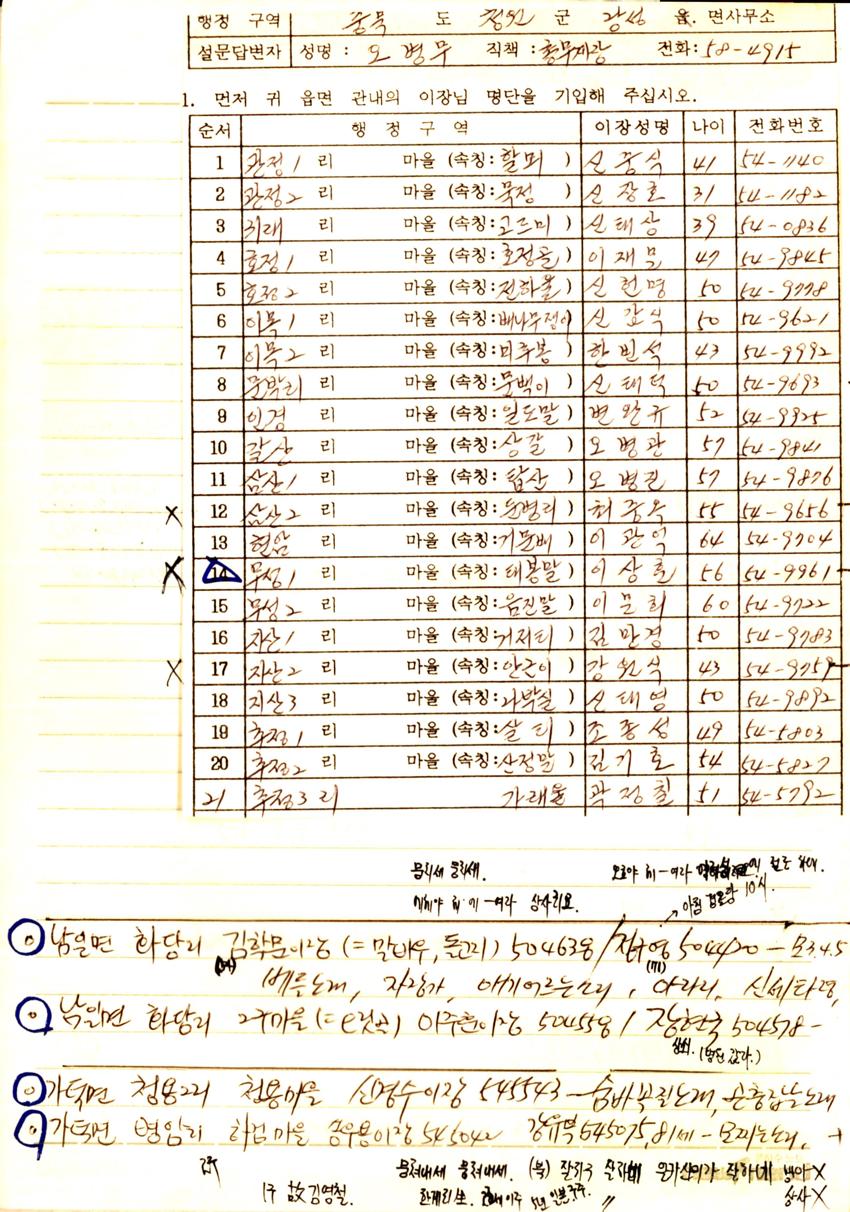 행정 구역 충북 도 청원 군 낭성 읍. 면사무소
설문답변자 성명 : 오병무 직책 : 총무계장 전화: 58-4915
1. 먼저 귀 읍면 관내의 이장님 명단을 기입해 주십시오.
순서 행정구역 이장성명 나이 전화번호
1 관정1 리 마을 (속칭: 할미 ) 신중식 41 54-1140
2 관정2 리 마을 (속칭: 묵정 ) 신장호 31 54-1182
3 귀래 리 마을 (속칭: 고드미 ) 신태상 39 54-0836
4 호정1 리 마을 (속칭: 호정골 ) 이재물 47 54-9845
5 호정2 리 마을 (속칭: 전하울 ) 신현명 50 54-9778
6 이목1 리 마을 (속칭: 배나무정이 신갑식 50 54-9621
7 이목2 리 마을 (속칭: 미루봉 ) 한빈석 43 54-9992
8 문박리 리 마을 (속칭: 문백이 ) 신태덕 50 54-9693
9 인경 리 마을 (속칭: 일도말 ) 변완규 52 54-9925
10 갈산 리 마을 (속칭: 상갈 ) 오병관 57 54-9841
11 삼산1 리 마을 (속칭: 탑산 ) 오병진 57 54-9876
12 삼산2 리 마을 (속칭: 둔병리 ) 최종옥 55 54-9656
13 현암 리 마을 (속칭: 거문배 ) 이관억 64 54-9704
14 무성1 리 마을 (속칭: 태봉말 ) 이상훈 56 54-9961
15 무성2 리 마을 (속칭: 음진말 ) 이문희 60 54-9722
16 지산1 리 마을 (속칭: 거저티 ) 김만경 50 54-9783
17 지산2 리 마을 (속칭: 안근이 ) 강원식 43 54-9759
18 지산3 리 마을 (속칭: 나박실 ) 신태영 50 54-9892
19 추정1 리 마을 (속칭: 살티 ) 조종성 49 54-5803
20 추정2 리 마을 (속칭: 산정말 ) 김기호 54 54-5827
21 추정3 리 가래울 곽정칠 51 54-5792
몸리세 몸리세.
상사리요.
아침 10시.
남일면 화당리 김학문이장 (= 말바우, 돌고지) 504638 / 전규영 504420 - 모3.4.5
베틀노래, 자장가, 애기어르는소리, 아라리, 신세타령,
남일면 화당리 2구마을 이주훈이장 504558 / 장현국 504578 -
상쇠.
가덕면 청용2리 청용마을 신경수이장 545543 - 숨바꼭질노래, 곤충잡는노래
가덕면 병암리 하검마을 송우용이장 545042 강유복 545075, 81세 - 모찌는소리. +
뭉쳐내세 뭉쳐내세. (북) 잘하네 방아X
故 김영철. 상사X